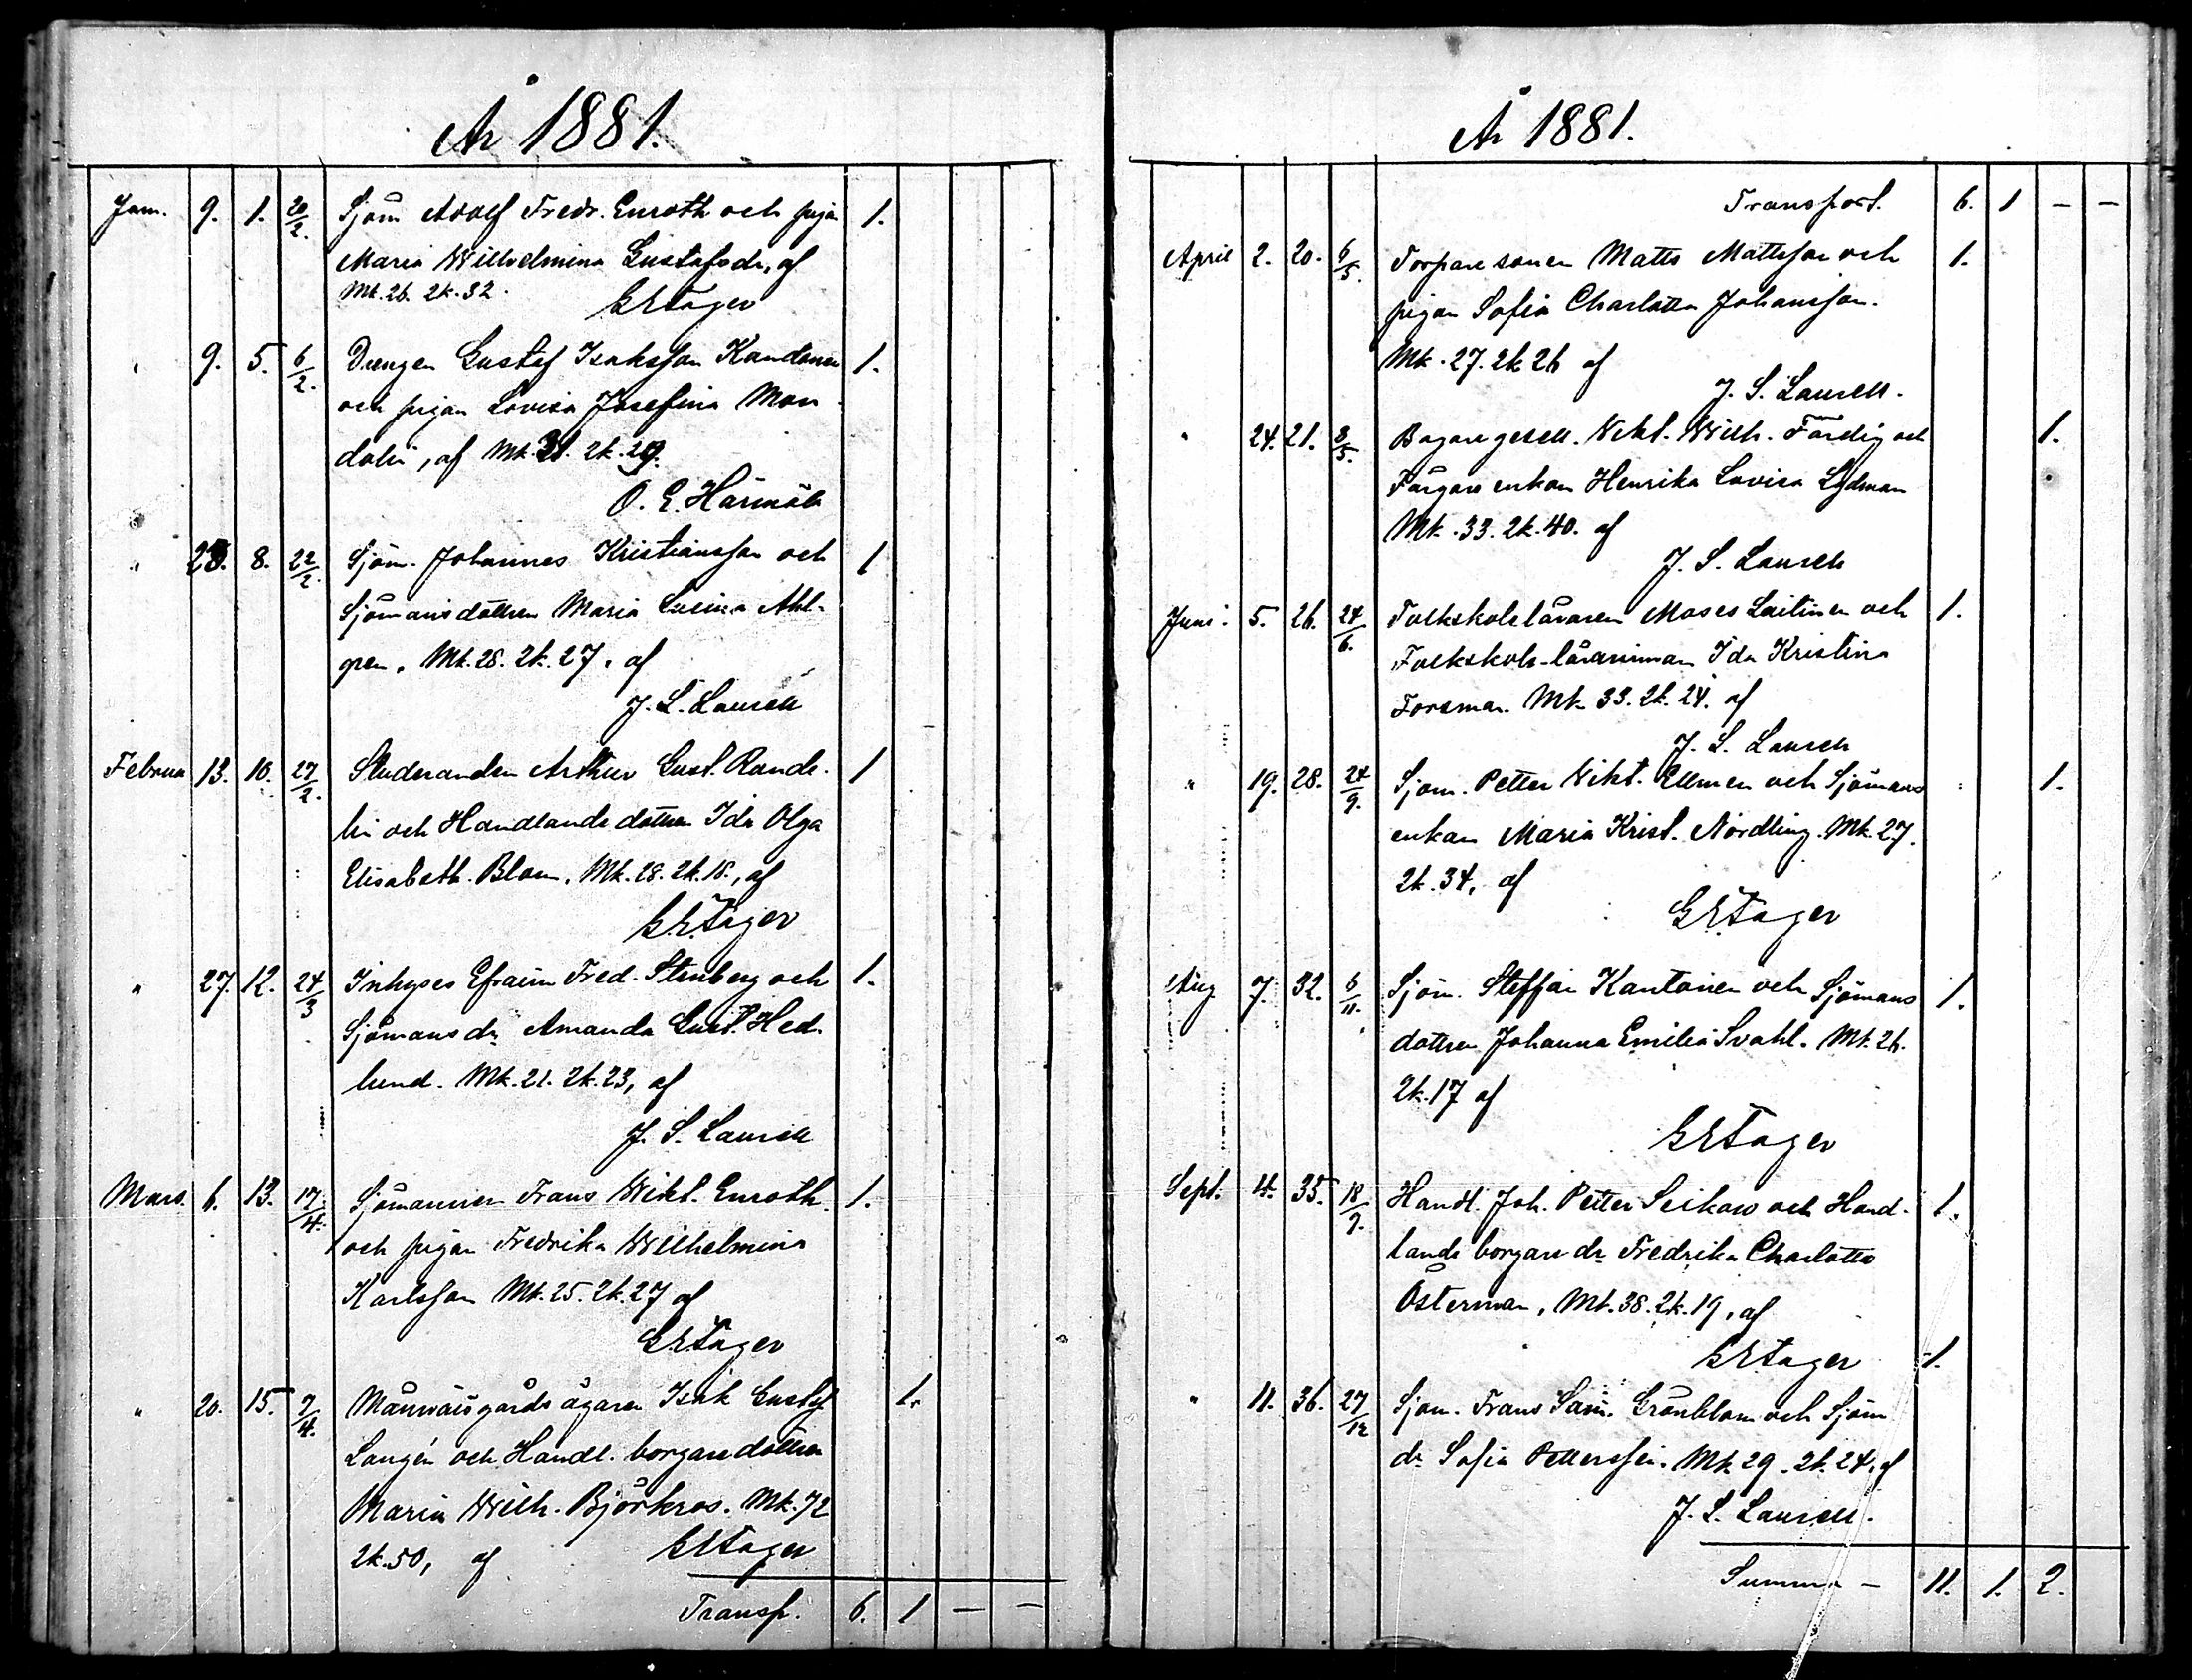 År 1881.
Jan. 9. 1. 20/2. Sjöm Adolf Fredr. Enroth och pigan 1.
Maria Wilhelmina Gustafsdr, af
Mk. 26. 2k. 32.
GETager
" 9. 5. 6/2. Drengen Gustaf Isaksson Kandanen 1.
och pigan Lovisa Josefina Man-
dolin, af Mk. 31. 2k. 29.
O. E. Härmälä
" 23. 8. 22/2. Sjöm. Johannes Kristiansson och 1
Sjömansdottren Maria Lusina Ahl-
gren. Mk. 28. 2k. 27. af
J. S. Laurell
Februa 13. 10. 27/2. Studeranden Arthur Gust. Rande- 1
lin och Handlandedottren Ida Olga
Elisabeth Blom. Mk. 28. 2k. 18., af
GETager
" 27. 12. 24/3 Inhyses Efraim Fred. Stenberg och 1.
Sjömansdr Amanda Gust. Hed-
lund. Mk. 21. 2k. 23, af
J. S. Laurell
Mars. 6. 13. 17/4. Sjömannen Frans Wikt. Enroth 1.
och pigan Fredrika Wilhelmina
Karlsson Mk. 25. 2k. 27 af
GETager
" 20. 15. 7/4. gårdsägaren Isak Gustaf 1.
Langén och Handl. borgaredottren
Maria Wilh. Björkros. Mk. 72
2k. 50, af GETager
Transp. 6. 1 — —
År 1881.
Transport. 6. 1 — —
April 2. 20. 6/5. Torparesonen Matts Mattsson och 1.
pigan Sofia Charlotta Johansson.
Mk. 27. 2k 26 af
J. S. Laurell.
" 24. 21. 8/5. Bagaregesell. Vikt. Wilh. Färdig och 1.
Färgareenkan Henrika Lovisa Lydman
Mk. 33. 2k. 40. af
J. S. Laurell
Juni. 5. 26. 24/6. Folkskoleläraren Moses Laitinen och 1.
Folkskole-lärarinnan Ida Kristina
Forsman. Mk. 33. 2k. 24. af
J. S. Laurell
" 19. 28. 24/9. Sjöm. Petter Vikt. Ellmen och Sjömans 1.
enkan Maria Krist. Nordling. Mk. 27.
2k. 34, af
GETager
Aug 7. 32. 6/11. Sjöm. Steffan Kantonen och Sjömans 1.
dottren Johanna Emilia Svahl. Mk. 26.
2k. 17 af
GETager
Sept. 4. 35. 18/9. Handl. Joh. Petter Seikow och Hand- 1.
lande borgare dr Fredrika Charlotta
Österman, Mk. 38. 2k. 19, af
GETager 1.
" 11. 36. 27/12 Sjöm. Frans Sam. Grönblom och Sjöm
dr Sofia Pettersson. Mk. 29. 2k. 24. af
J. S. Laurell.
Summa — 11. 1. 2.